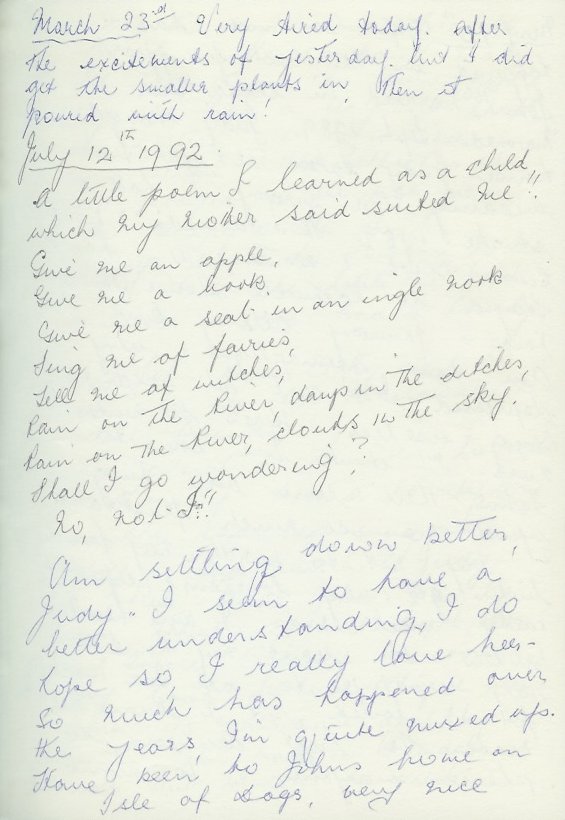 March 23rd Very tired today. after
the excitements of yesterday. but I did
get the smaller plants in, Then it
poured with rain!
July 12th 1992.
A little poem I learned as a child
which my Mother said suited me"!
Give me an apple,
Give me a book,
Give me a seat in an ingle nook
Sing me of fairies,
Tell me of witches,
Rain on the River, damps in the ditches,
Rain on the River, clouds in the sky.
Shall I go wondering?
No, not I"!
Am settling down better,
Judy. I seem to have a
better understanding, I do
hope so, I really love her-
So much has happened over
the years, I'm quite muxed ups.
Have been to Johns home on
Isle of Dogs, very nice